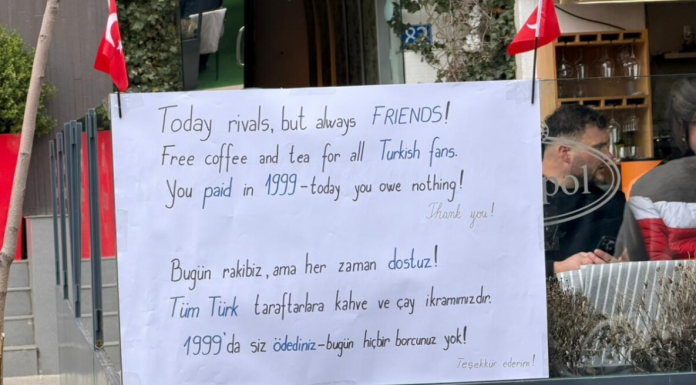 Today rivals, but always FRIENDS!
Free coffee and tea for all Turkish fans.
You paid in 1999-today you owe nothing!
Thank you!
Bugün rakibiz, ama her zaman dostuz!
Tüm Türk taraftarlara kahve ve çay ikramımızdır.
1999'da siz ödediniz-bugün hiçbir borcunuz yok!
Teşekkür ederim!
pol